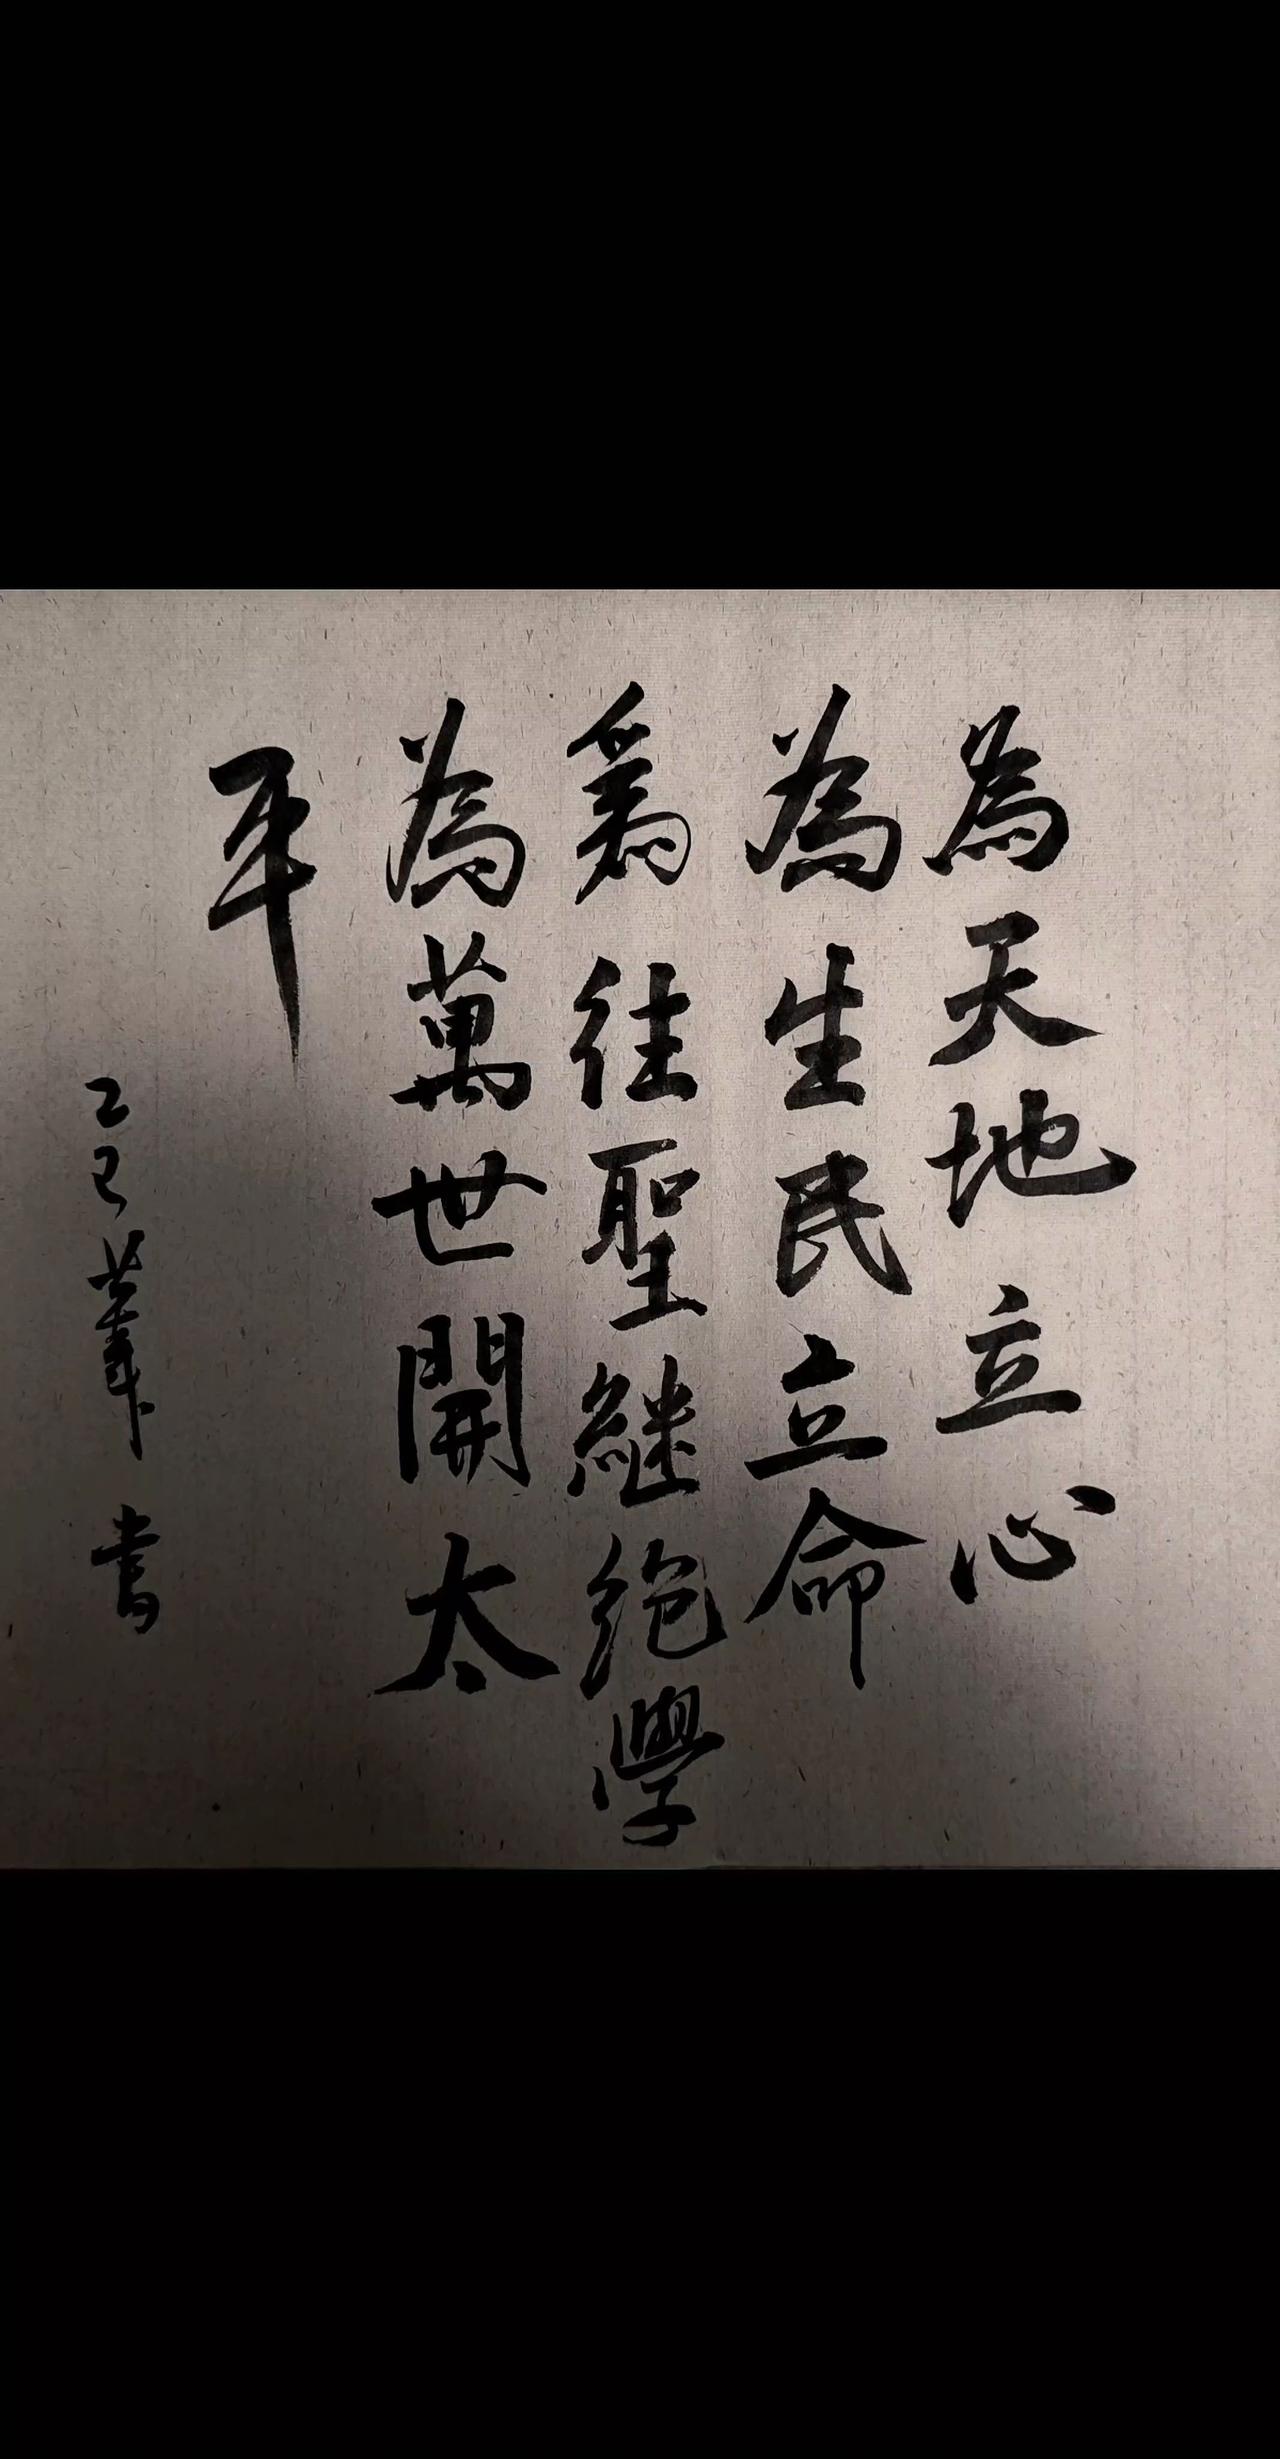 為天地立心
為生民立命
爲往聖継絶學
為萬世開太
平
乙巳 書